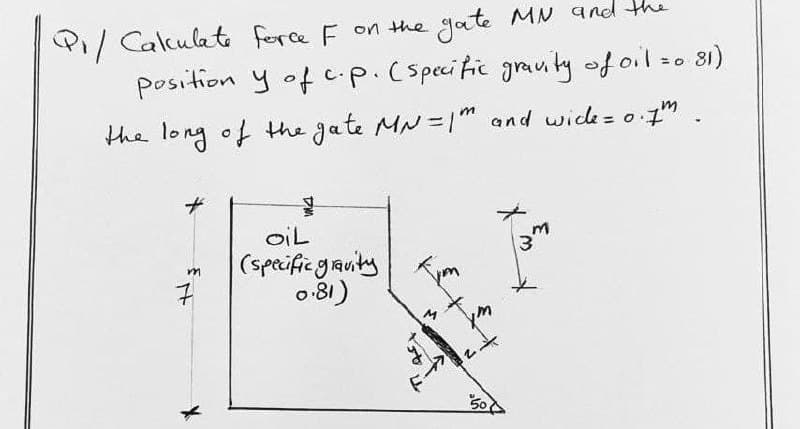 Q1/ Calculate force F on the gate MN and the
position y of c.p. (specific gravity of oil = 0.81)
the long of the gate MN = 1m and wide = 0.7m.
OIL
(specific gravity
0.81)
7m
3m
1m
1m
M
N
y
F
50°